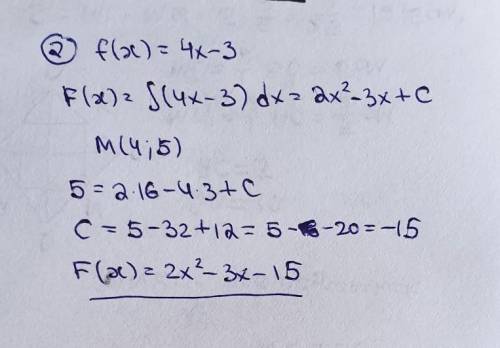 ② f(x) = 4x-3
F(x) = ∫(4x-3) dx = 2x² - 3x + C
M(4;5)
5 = 2·16 - 4·3 + C
C = 5 - 32 + 12 = 5 - 20 = -15
F(x) = 2x² - 3x - 15